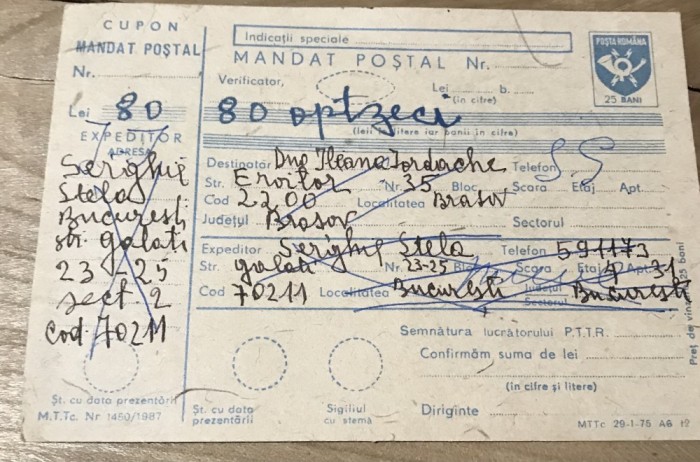 CUPON
MANDAT POȘTAL
Nr.
Lei 80
EXPEDITOR
ADRESA
Serighie
Stela
București
str. Galati
23-25
sect. 2
cod. 70211
Șt. cu data prezentării
M.T.Tc. Nr 1450/1987
Indicații speciale
MANDAT POȘTAL Nr.
Verificator,
Lei b.
(în cifre)
POȘTA ROMÂNA
25 BANI
80 optzeci
(leii în litere iar banii în cifre)
Destinatar Dnei Ileana Iordache Telefon
Str. Eroilor Nr. 35 Bloc Scara Etaj Apt.
Cod 2200 Localitatea Brasov
Județul Brasov Sectorul
Expeditor Serighie Stela Telefon 591173
Str. Galati Nr. 23-25 Bloc Scara Etaj 4 Apt. 31
Cod 70211 Localitatea București Județul București
Sectorul
Semnătura lucrătorului P.T.T.R.
Confirmăm suma de lei
(în cifre și litere)
Șt. cu data
prezentării
Sigiliul
cu stemă
Diriginte
MTTc 29-1-75 A6 t2
25 bani